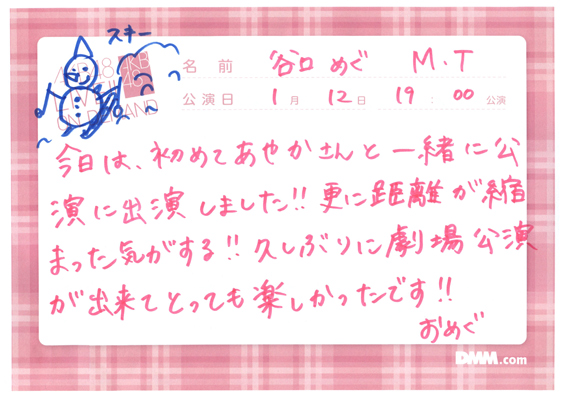 スキー
AKB48
LIVE!! ON DEMAND
名 前 谷口 めぐ M.T
公演日 1月 12日 19:00 公演
今日は、初めてあやかさんと一緒に公
演に出演しました!! 更に距離が縮
まった気がする!! 久しぶりに劇場公演
が出来てとっても楽しかったです!!
おめぐ
DMM.com